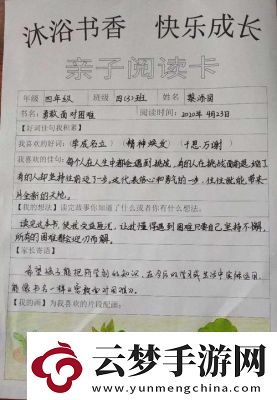 沐浴书香 快乐成长
亲子阅读卡
年级 四年级 班级 四(3)班 姓名
书名: 勇敢面对困难 阅读时间: 2020年4月23日
【好词佳句我积累】
我喜欢的好词: (学成名立) (精神焕发) (千恩万谢)
我喜欢的佳句: 每个人在人生中都会遇到挑战, 有的人在挑战面前退缩了
有的人却坚持往前迈了一步。这代表信心和勇气的一步, 往往就能带来
片全新的天地。
【我的想法】读完故事你知道了什么或者你有什么想法。
读完这本书, 使我受益匪浅, 让我懂得遇到困难只要自己坚持不懈,
所有的困难都会迎刃而解。
【家长寄语】
希望孩子能把所学到的知识, 在今后的学习或生活中实际运用,
能像书名一样《勇敢面对困难》。
【我的画】为我喜欢的片段配画:
云梦手游网
www.yunmengchina.com